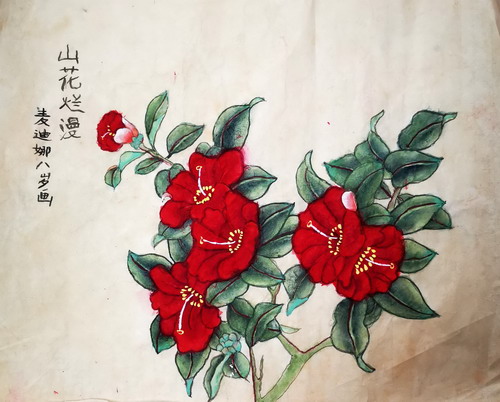 山花烂漫
麦迪娜八岁画